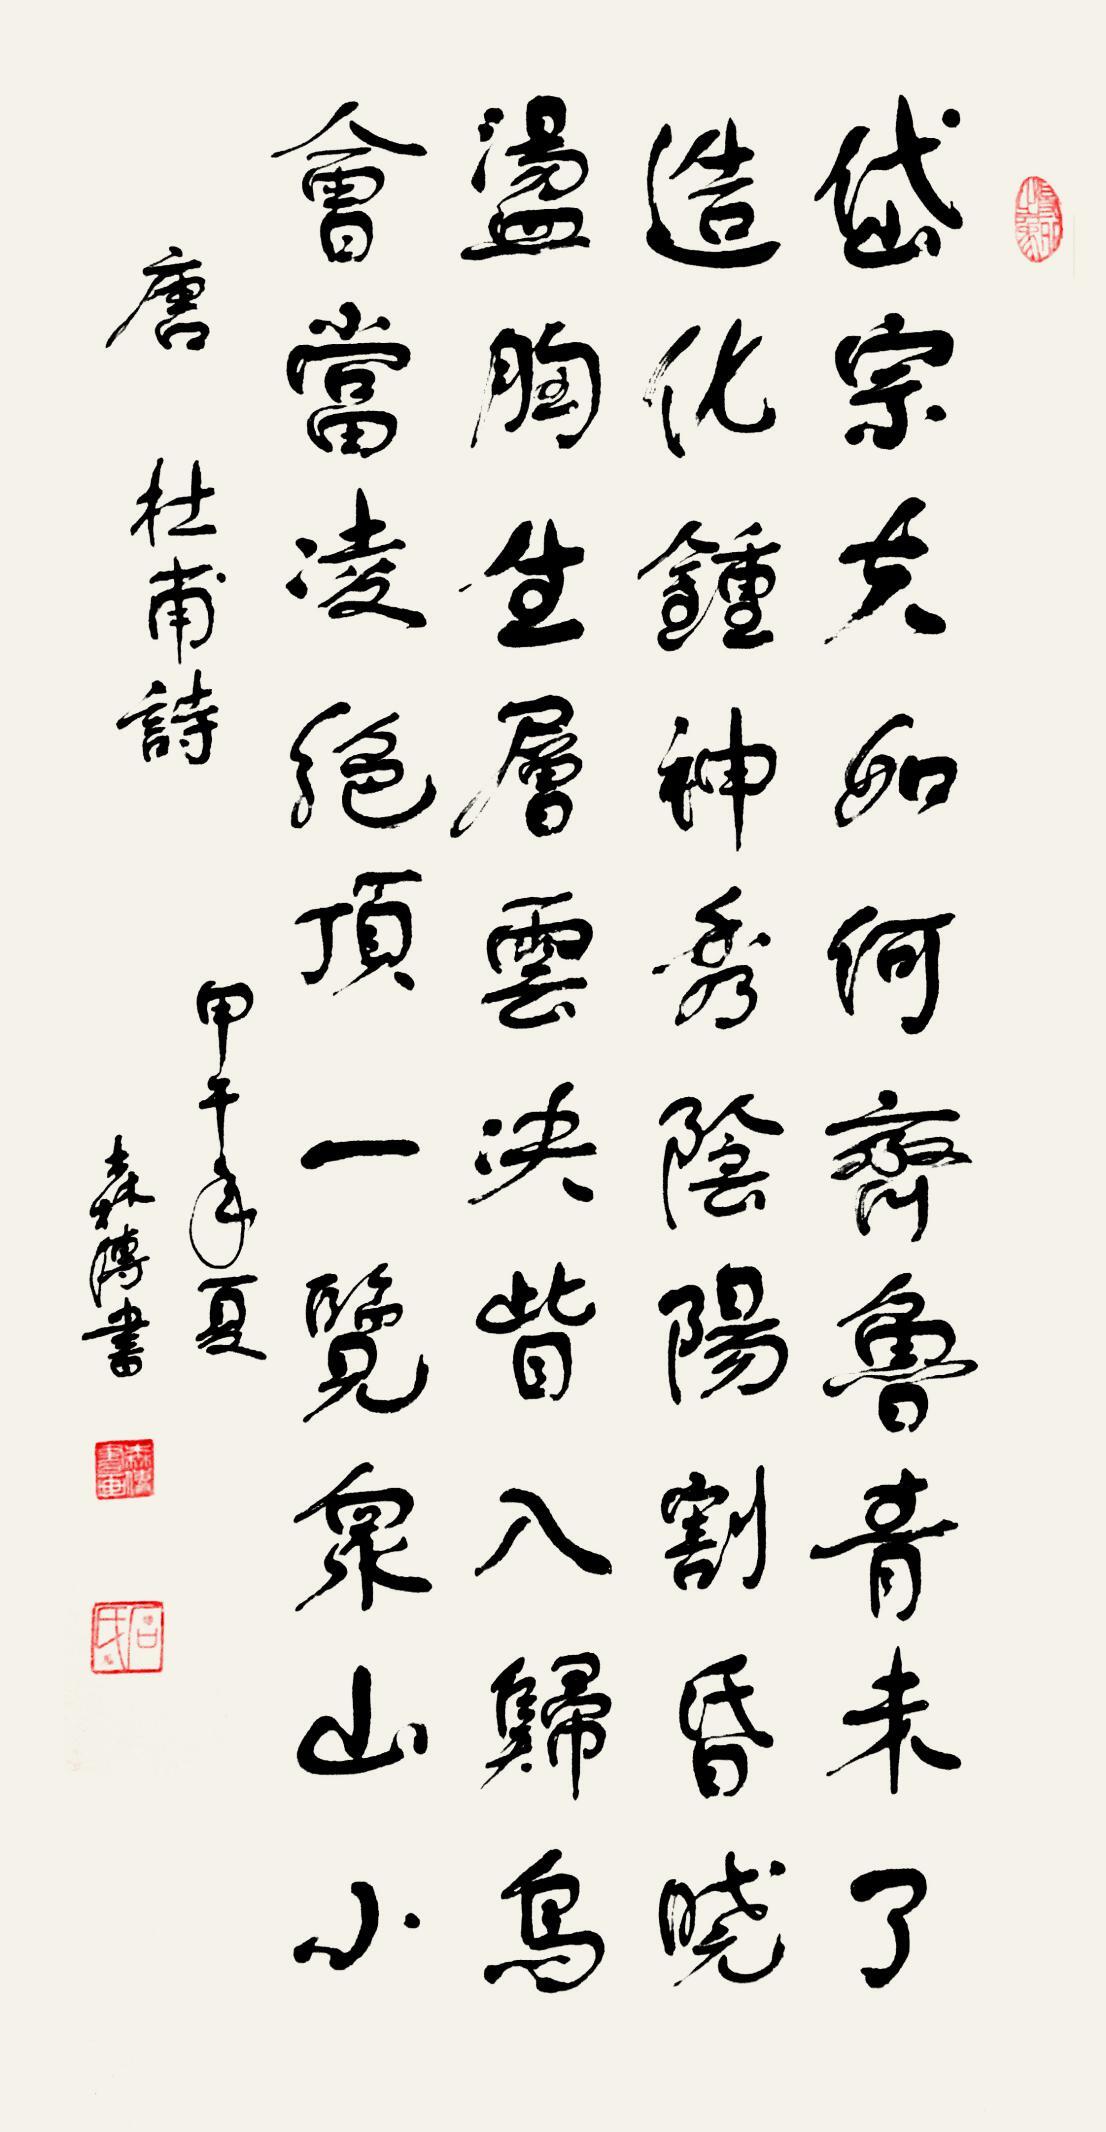 岱宗夫如何齊魯青未了
造化鍾神秀陰陽割昏晓
盪胸生層雲决眥入歸鳥
會當凌絕頂一覽衆山小
唐 杜甫詩
甲午年夏
森博書